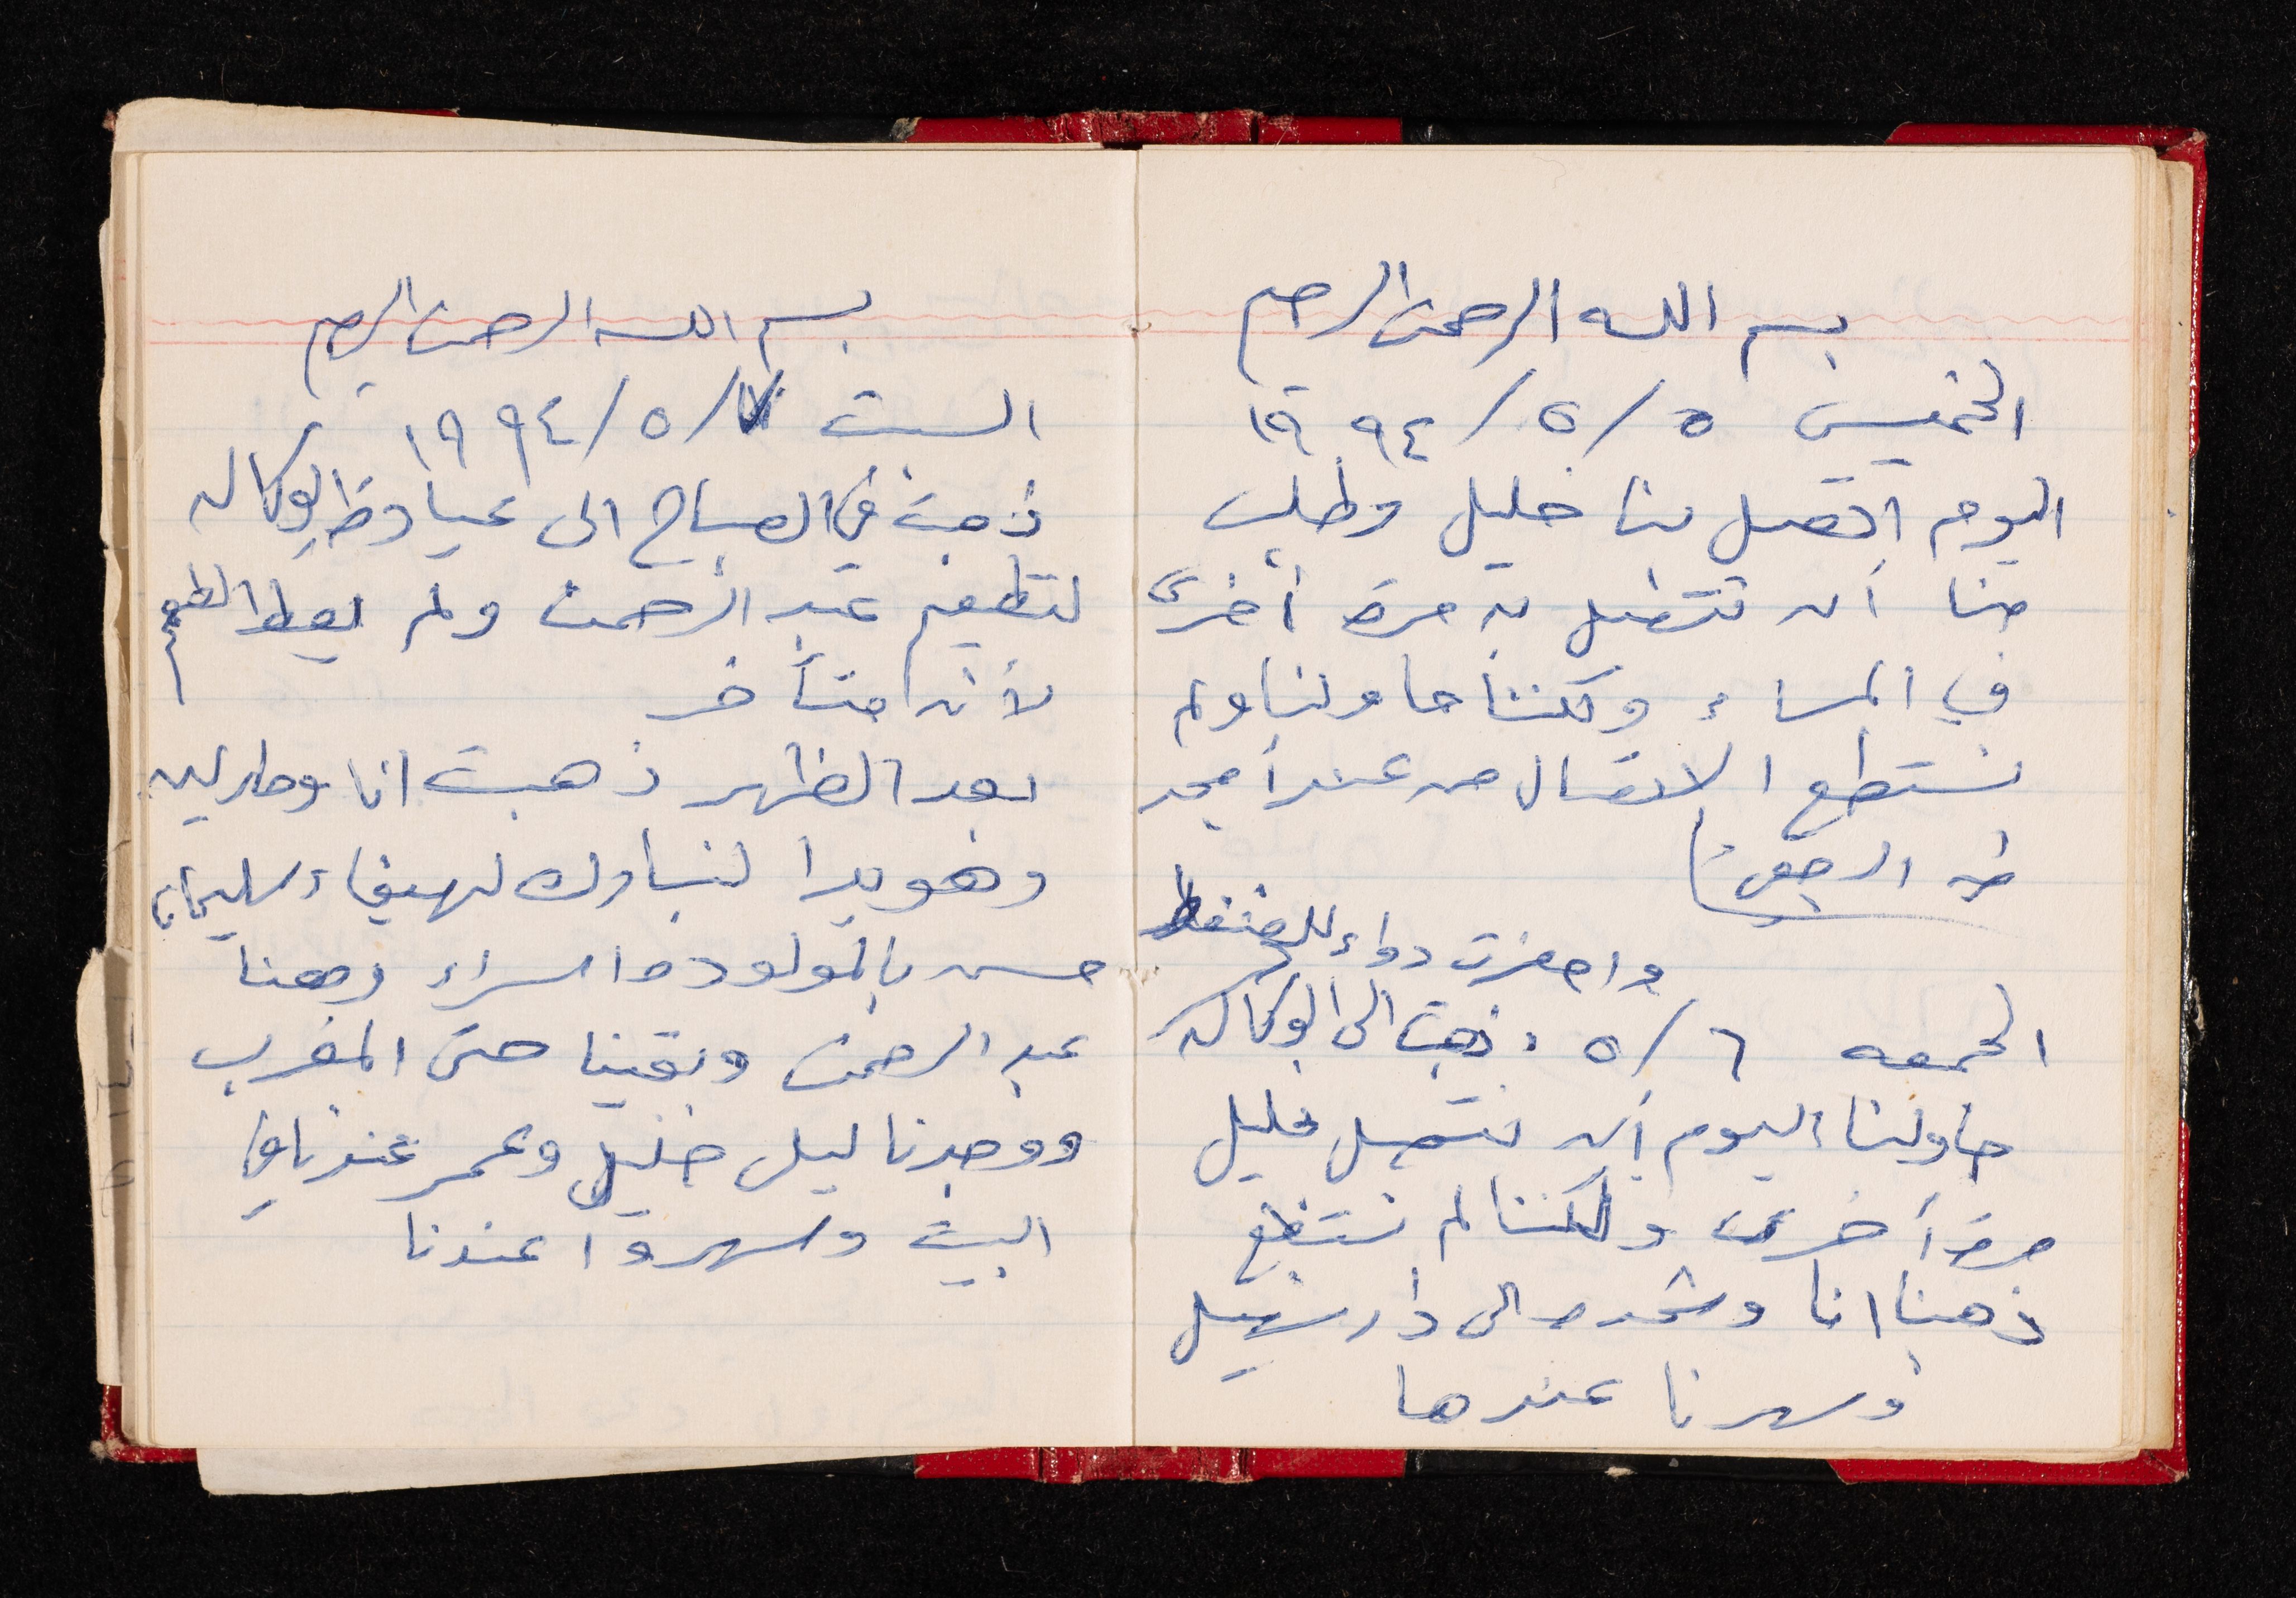 بسم الله الرحمن الرحيم
الخميس ٥/٥/١٩٩٤
اليوم اتصل بنا خليل وطلب
منا أن نتصل به مرة أخرى
في المساء ولكننا حاولنا ولم
نستطع الاتصال من عند أمجد
واحضرت دواء للضغط
الجمعه ٥/٦ ذهبت الى الوكاله
حاولنا اليوم أن نتصل بخليل
مرة أخرى ولكننا لم نستطع
ذهبنا انا وشحده الى دار سهيل
وسهرنا عندها
بسم الله الرحمن الرحيم
السبت ٧/٥/١٩٩٤
ذهبت في الصباح الى عيادة الوكاله
لتطعيم عبد الرحمن ولم يعط الطعم
لأنه متأخر
بعد الظهر ذهبت انا ومارلين
وهويدا لنبارك لهيفاء سليمان
حسن بالمولوده اسراء ومعنا
عبد الرحمن وبقينا حتى المغرب
ووجدنا ليل خليل وعمر عندنا في
البيت وسهروا عندنا